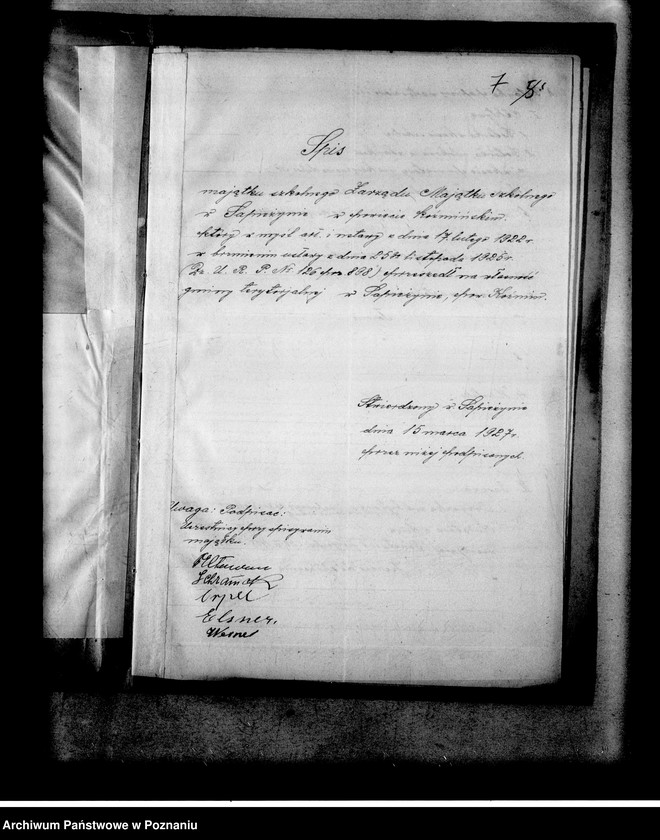 7
Spis
majątku szkolnego Zarządu Majątku szkolnego
w Sapieżynie w powiecie Koźmińskim.
który w myśl art. 1 ustawy z dnia 17 lutego 1922 r.
w brzmieniu ustawy z dnia 25go listopada 1925 r.
(Dz. U. R. P. Nr. 126 poz 898) przeszedł na własność
gminy terytorjalnej w Sapieżynie, pow. Koźmin.
Stwierdzony w Sapieżynie
dnia 15 marca 1927 r.
przez niżej podpisanych.
Uwaga: Podpisać:
Uczestnicy przy spisywaniu
majątku.
Schramek
Elsner.
Archiwum Państwowe w Poznaniu